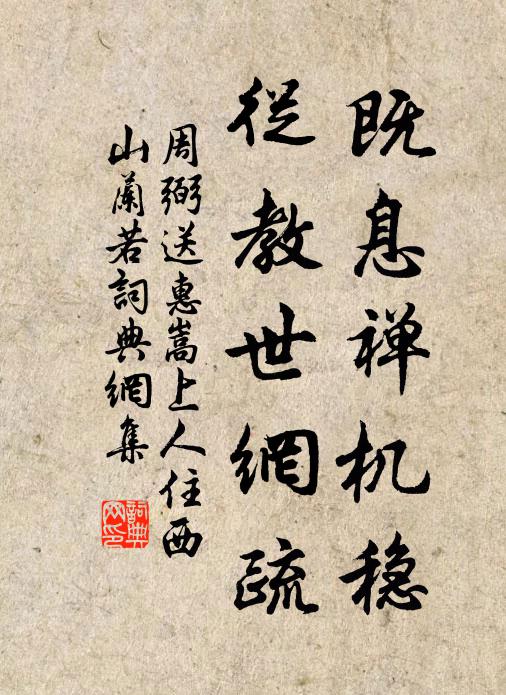 既息禅机稳
從教世網疏
周弼送惠嵩上人住西
山蘭若詞典網集
詞典
网印